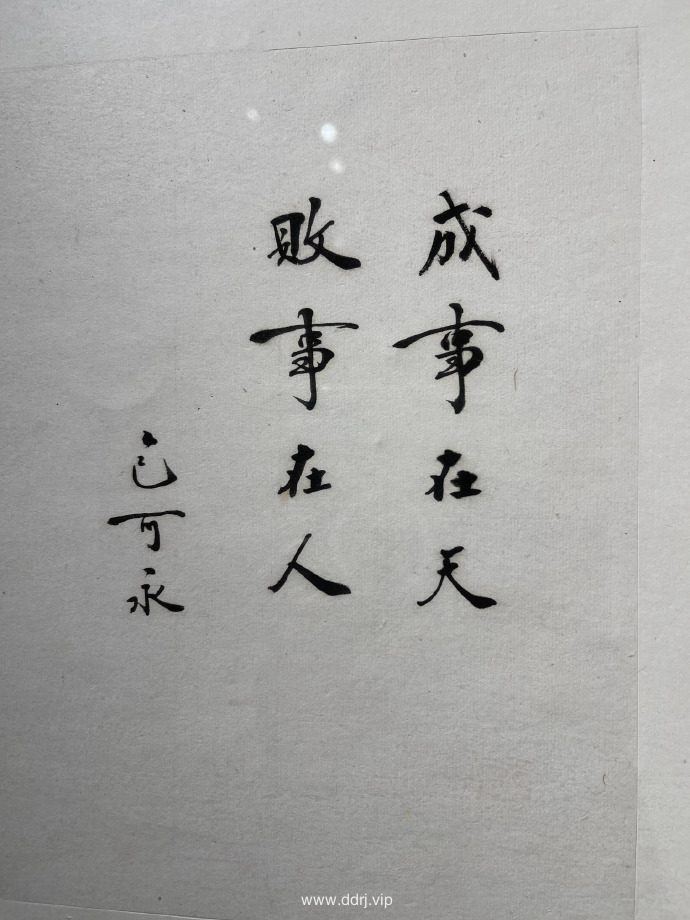 成事在天
敗事在人
包可永
www.ddrj.vip